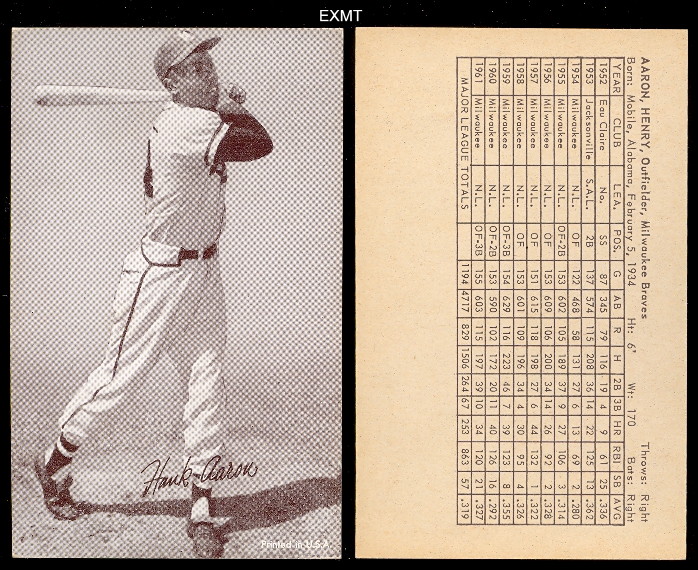 EXMT
Hank Aaron
Printed in U.S.A.
AARON, HENRY, Outfielder, Milwaukee Braves Throws: Right
Born: Mobile, Alabama, February 5, 1934 Ht: 6' Wt: 170 Bats: Right
YEAR CLUB LEA. POS. G AB R H 2B 3B HR RBI SB AVG
1952 Eau Claire No. SS 87 345 79 116 19 4 9 61 25 .336
1953 Jacksonville S.A.L. 2B 137 574 115 208 36 14 22 125 13 .362
1954 Milwaukee N.L. OF 122 468 58 131 27 6 13 69 2 .280
1955 Milwaukee N.L. OF-2B 153 602 105 189 37 9 27 106 3 .314
1956 Milwaukee N.L. OF 153 609 106 200 34 14 26 92 2 .328
1957 Milwaukee N.L. OF 151 615 118 198 27 6 44 132 1 .322
1958 Milwaukee N.L. OF 153 601 109 196 34 4 30 95 4 .326
1959 Milwaukee N.L. OF-3B 154 629 116 223 46 7 39 123 8 .355
1960 Milwaukee N.L. OF-2B 153 590 102 172 20 11 40 126 16 .292
1961 Milwaukee N.L. OF-3B 155 603 115 197 39 10 34 120 21 .327
MAJOR LEAGUE TOTALS 1194 4717 829 1506 264 67 253 863 57 .319